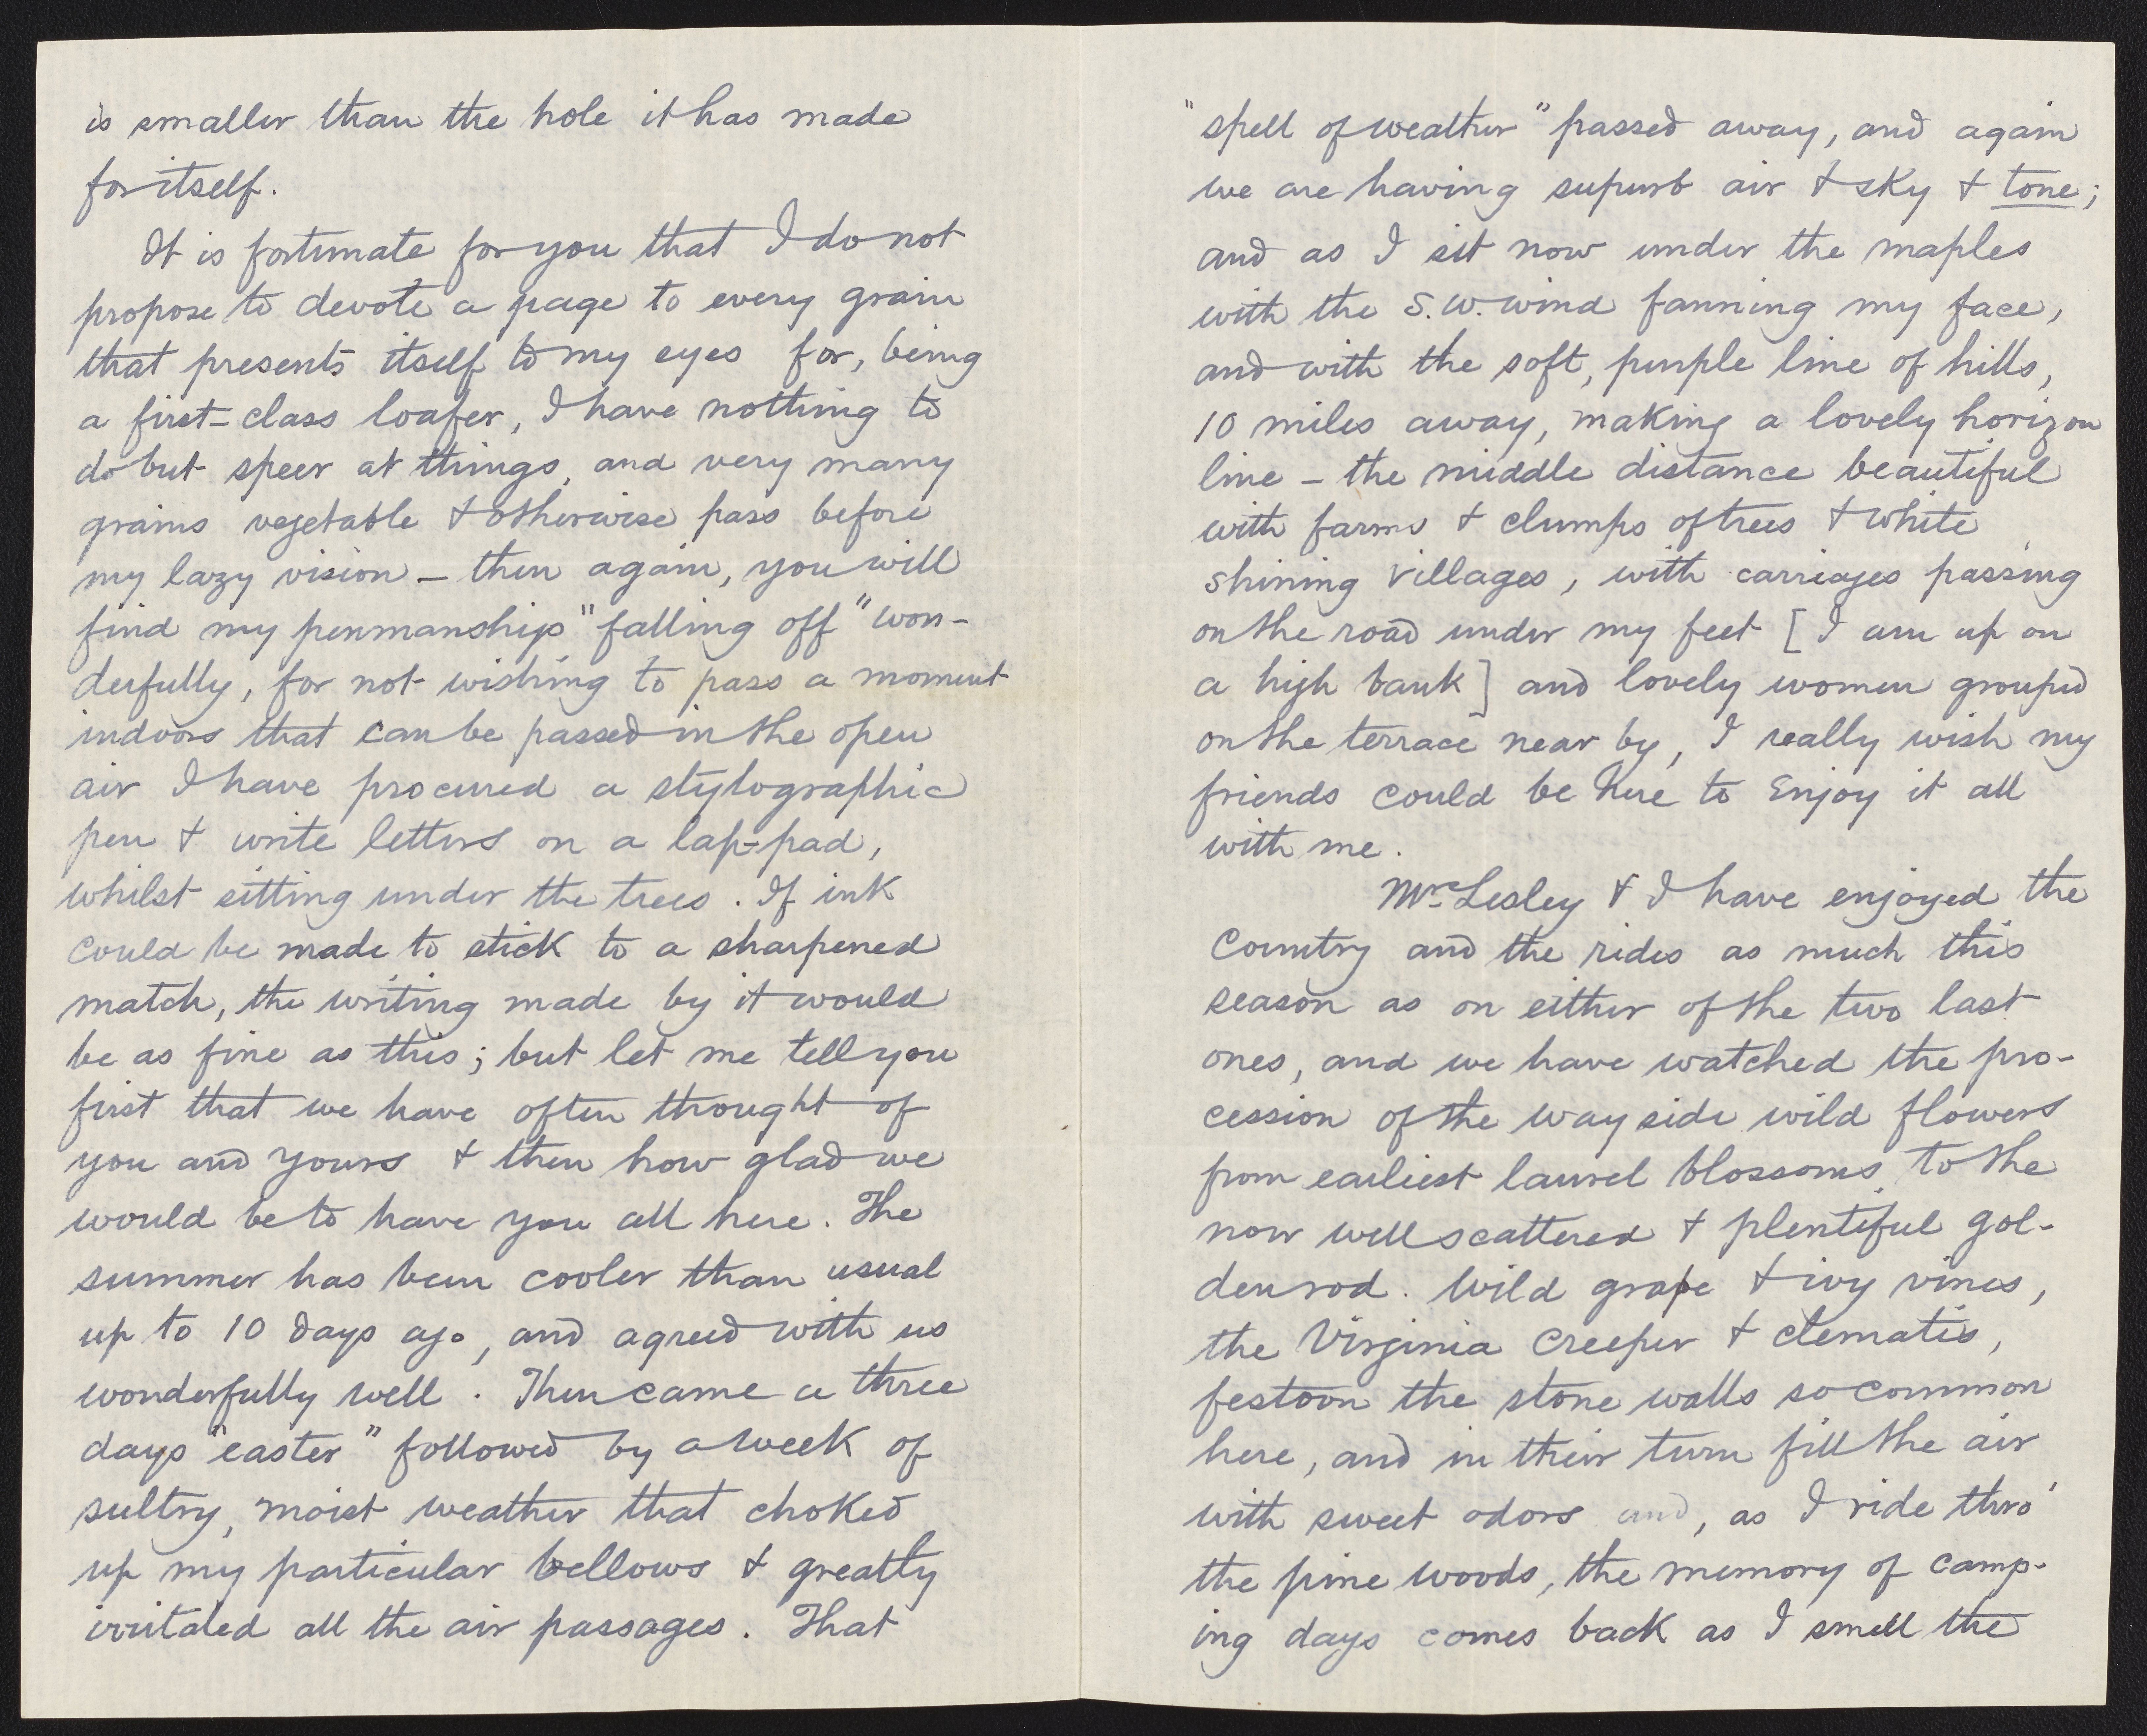 is smaller than the hole it has made
for itself.
It is fortunate for you that I do not
propose to devote a page to every grain
that presents itself to my eyes for, being
a first-class loafer, I have nothing to
do but speer at things, and very many
grains vegetable & otherwise pass before
my lazy vision – then again, you will
find my penmanship "falling off" won-
derfully, for not wishing to pass a moment
indoors that can be passed in the open
air I have procured a stylographic
pen & write letters on a lap-pad,
whilst sitting under the trees. If ink
could be made to stick to a sharpened
match, the writing made by it would
be as fine as this; but let me tell you
first that we have often thought of
you and yours & then how glad we
would be to have you all here. The
summer has been cooler than usual
up to 10 days ago, and agreed with us
wonderfully well. Then came a three
days "easter" followed by a week of
sultry, moist weather that choked
up my particular bellows & greatly
irritated all the air passages. That
"spell of weather" passed away, and again
we are having superb air & sky & tone;
and as I sit now under the maples
with the S.W. wind fanning my face,
and with the soft, purple line of hills,
10 miles away, making a lovely horizon
line – the middle distance beautiful
with farms & clumps of trees & white
shining villages, with carriages passing
on the road under my feet [I am up on
a high bank] and lovely women grouped
on the terrace near by, I really wish my
friends could be here to enjoy it all
with me.
Mrs. Lesley & I have enjoyed the
country and the rides as much this
season as on either of the two last
ones, and we have watched the pro-
cession of the wayside wild flowers
from earliest laurel blossoms to the
now well scattered & plentiful gol-
den rod. Wild grape & ivy vines,
the Virginia Creeper & clematis,
festoon the stone walls so common
here, and in their turn fill the air
with sweet odors and, as I ride thro'
the pine woods, the memory of camp-
ing days comes back as I smell the